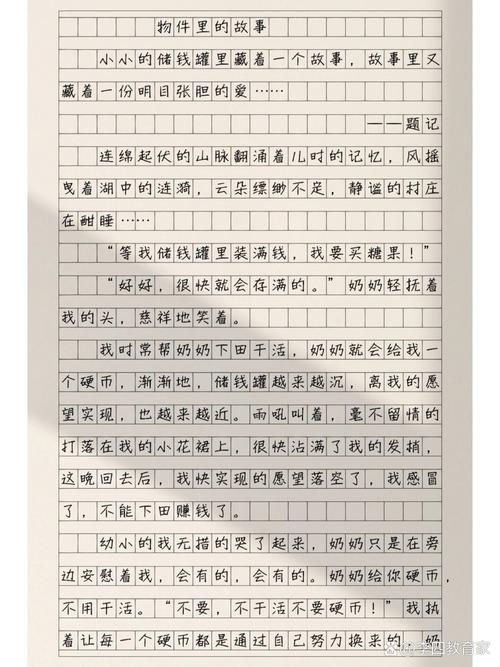 物件里的故事
小小的储钱罐里藏着一个故事，故事里又
藏着一份明目张胆的爱……
——题记
连绵起伏的山脉翻涌着儿时的记忆，风摇
曳着湖中的涟漪，云朵缥缈不足，静谧的村庄
在酣睡……
“等我储钱罐里装满钱，我要买糖果！”
“好好，很快就会存满的。”奶奶轻抚着
我的头，慈祥地笑着。
我时常帮奶奶下田干活，奶奶就会给我一
个硬币，渐渐地，储钱罐越来越沉，离我的愿
望实现，也越来越近。雨吼叫着，毫不留情的
打落在我的小花裙上，很快沾满了我的发捎，
这晚回去后，我快实现的愿望落空了，我感冒
了，不能下田赚钱了。
幼小的我无措的哭了起来，奶奶只是在旁
边安慰着我，会有的，会有的。奶奶给你硬币，
不用干活。“不要，不干活不要硬币！”我执
着让每一个硬币都是通过自己努力换来的 奶
李四教育家